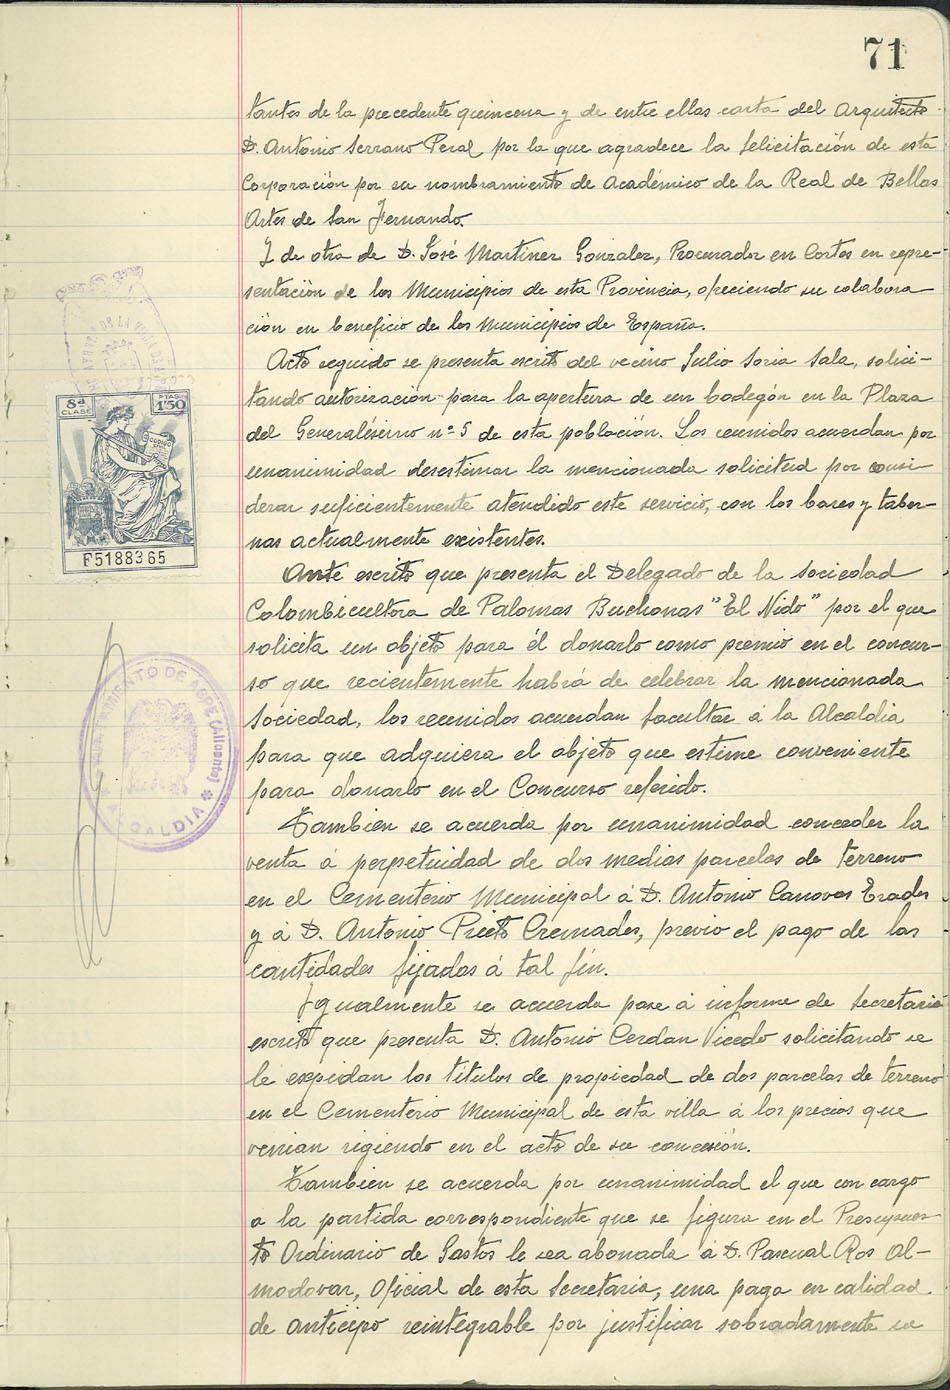 71
tantes de la precedente quincena y de entre ellas carta del Arquitecto
D. Antonio Serrano Peral por la que agradece la felicitación de esta
Corporación por su nombramiento de Académico de la Real de Bellas
Artes de San Fernando.
Y de otra de D. José Martinez Gonzalez, Procurador en Cortes en repre-
sentación de los Municipios de esta Provincia, ofreciendo su colabora
ción en beneficio de los Municipios de España.
Acto seguido se presenta escrito del vecino Julio Soria Sala, solici-
tando autorización para la apertura de un bodegón en la Plaza
del Generalísimo nº 5 de esta población. Los reunidos acuerdan por
unanimidad desestimar la mencionada solicitud por consi
derar suficientemente atendido este servicio, con los bares y taber-
nas actualmente existentes.
Ante escrito que presenta el Delegado de la Sociedad
Colombicultora de Palomas Buchonas "El Nido" por el que
solicita un objeto para él donarlo como premio en el concur-
so que recientemente habrá de celebrar la mencionada
Sociedad, los reunidos acuerdan facultar á la Alcaldia
para que adquiera el objeto que estime conveniente
para donarlo en el Concurso referido.
Tambien se acuerda por unanimidad conceder la
venta á perpetuidad de dos medias parcelas de terreno
en el Cementerio Municipal á D. Antonio Canovas Erades
y á D. Antonio Prieto Cremades, previo el pago de las
cantidades fijadas á tal fin.
Igualmente se acuerda pase á informe de Secretaria
escrito que presenta D. Antonio Cerdan Vicedo solicitando se
le expidan los titulos de propiedad de dos parcelas de terreno
en el Cementerio Municipal de esta villa á los precios que
venian rigiendo en el acto de su concesión.
Tambien se acuerda por unanimidad el que con cargo
a la partida correspondiente que se figura en el Presupues
to Ordinario de Gastos le sea abonada á D. Pascual Ros Al-
modovar, Oficial de esta Secretaria, una paga en calidad
de anticipo reintegrable por justificar sobradamente su
8ª
CLASE
PTAS.
1'50
F5188365
AYUNTAMIENTO DE ASPE (Alicante)
ALCALDIA